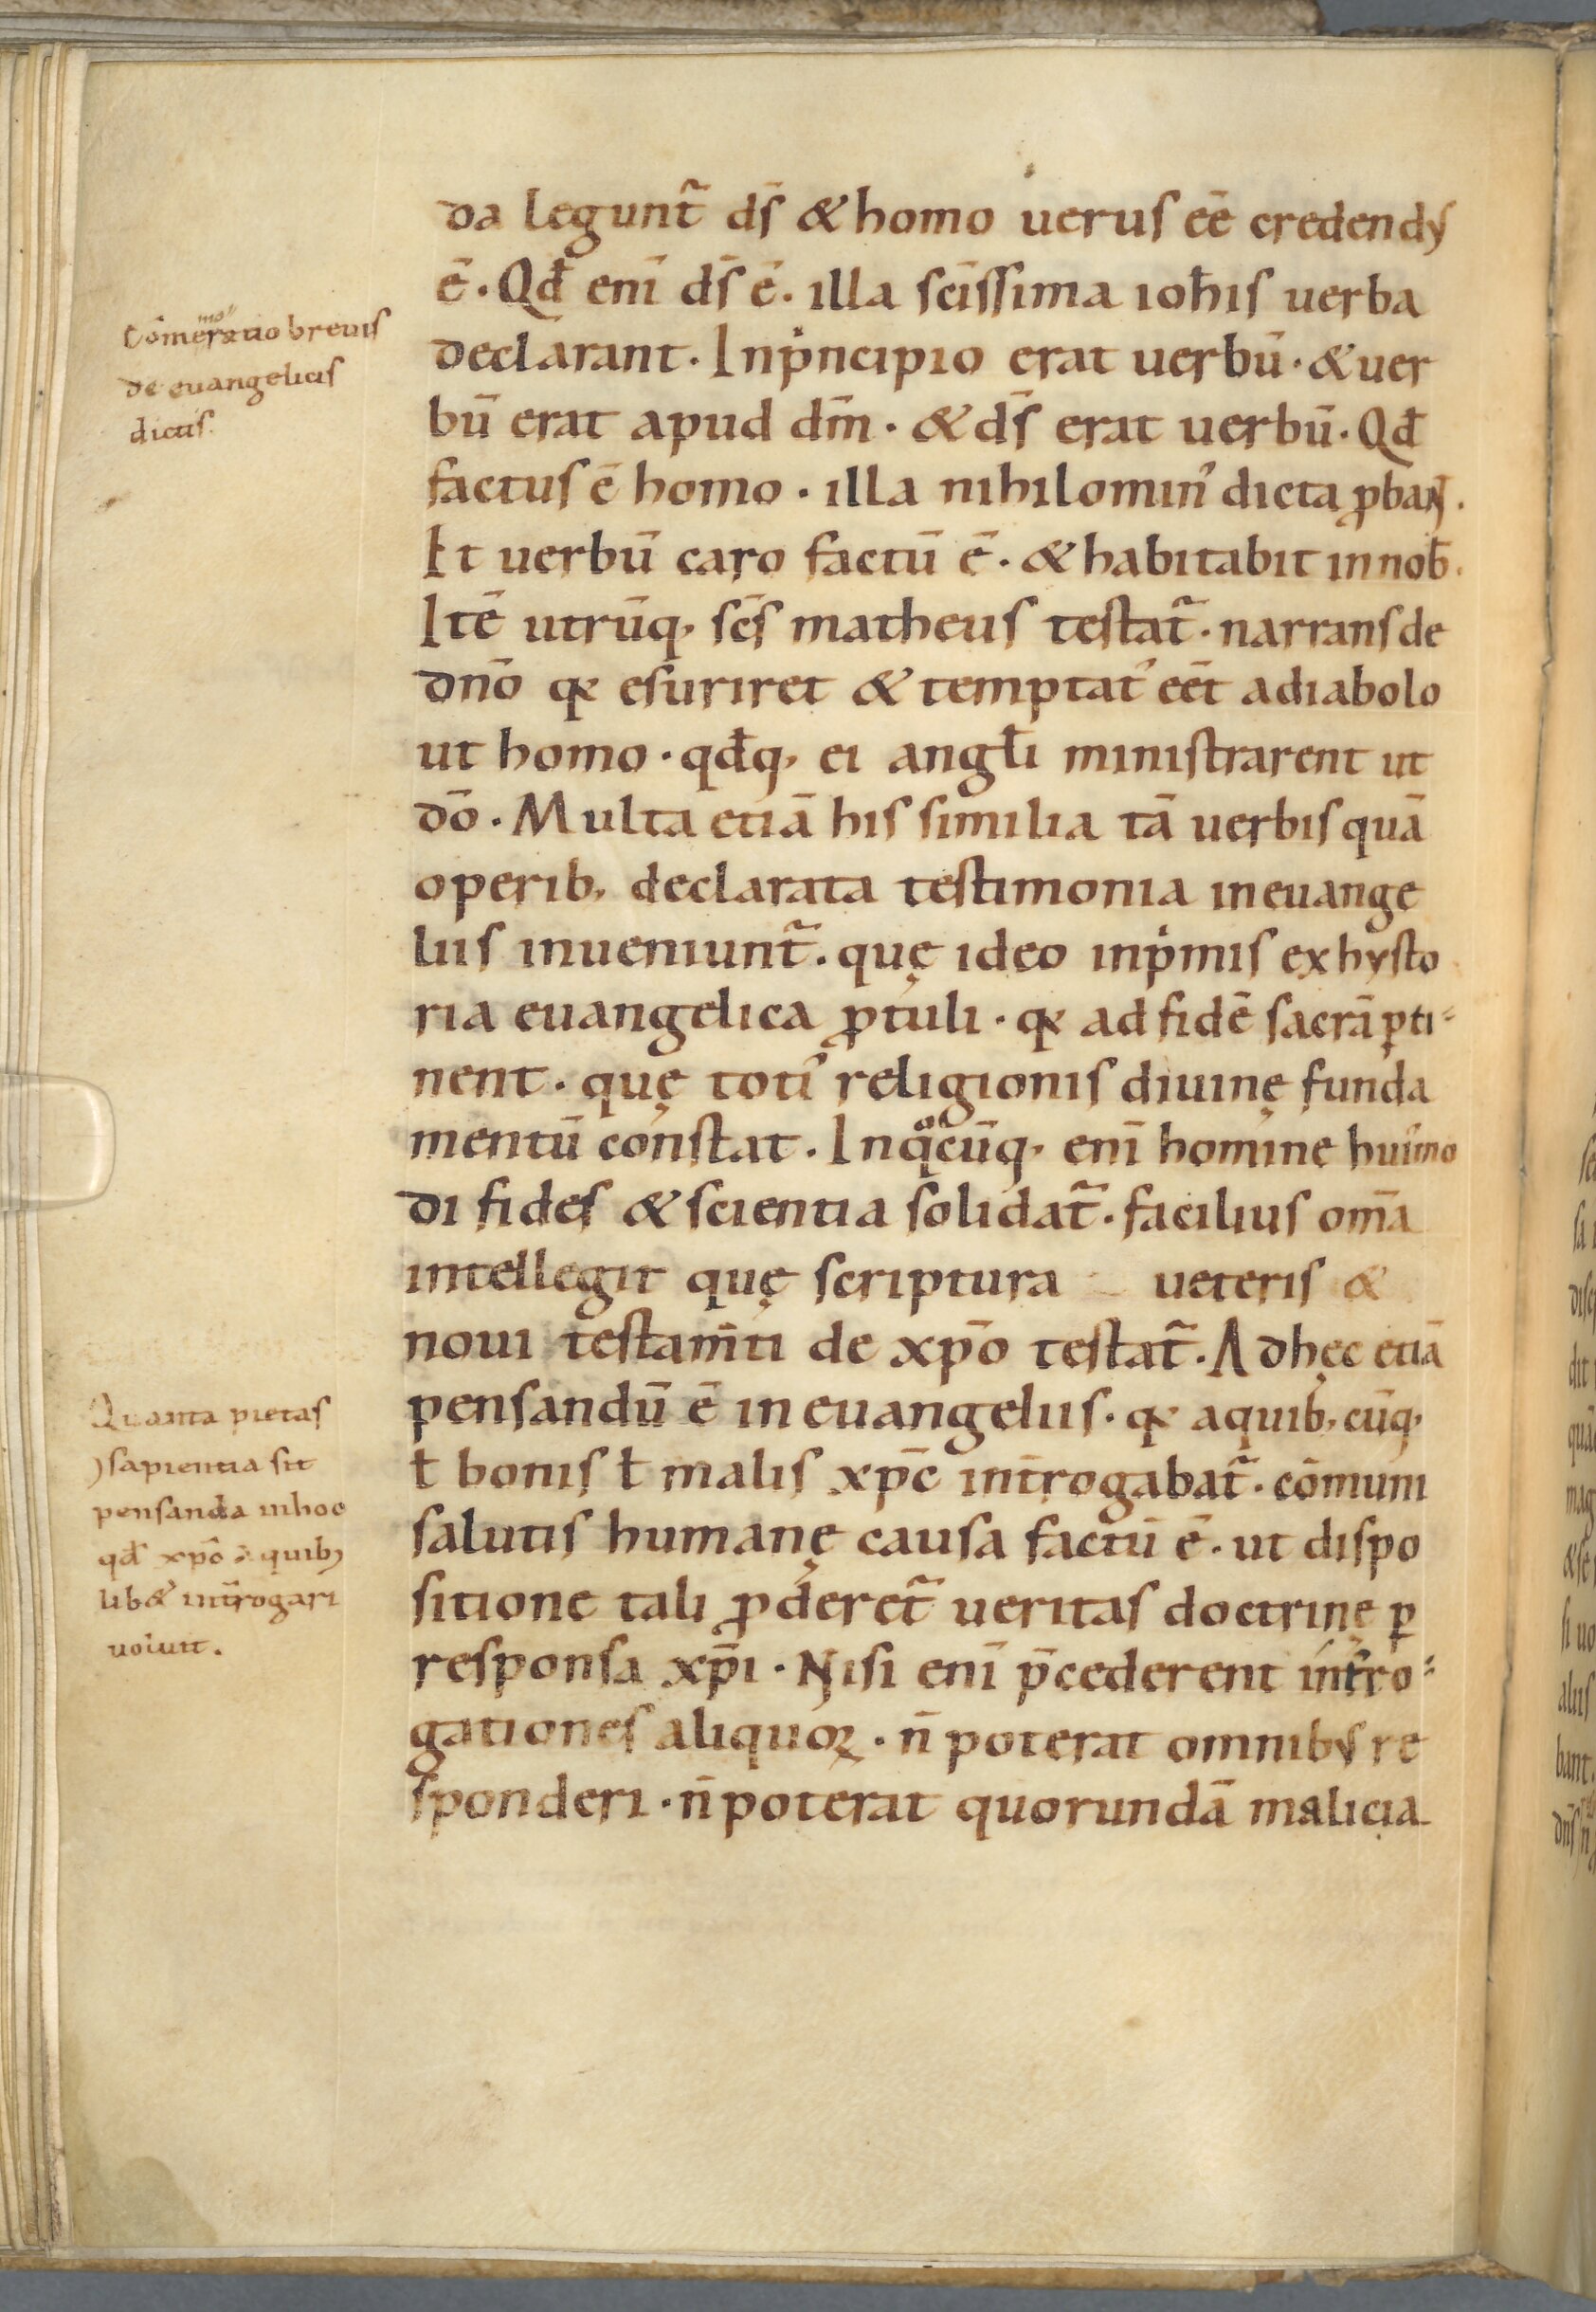 da legunt᷑ ds̄ & homo uerus eē credendꝰ
ē. Qđ enī ds̄ ē. illa scīssima ioħis uerba
declarant. Inpͥncipio erat uerbū. & uer
bū erat apud dm̄. & ds̄ erat uerbū. Qđ
factus ē homo. illa nihilominꝰ dicta ꝓbant̄.
Et uerbū caro factū ē. & habitabit innob̄.
Itē utrūq; scs̄ matheus testat᷑. narrans de
dnō qꝛ esuriret & temptatꝰ eēt adiabolo
ut homo. qđq; ei angƚi ministrarent ut
dō. Multa etiā his similia tā uerbis quā
operib; declarata testimonia ineuange
liis inueniunt᷑. quę ideo inpͥmis ex hysto
ria euangelica ꝓtuli. qꝛ ad fidē sacrā ꝑti-
nent. quę totiꝰ religionis diuinę funda
mentū constat. Inqͦcūq; enī homine huiꝰmo
di fides & scientia solidat᷑. facilius om̄a
intellegit quę scriptura ueteris &
noui testam̄ti de xp̄o testat᷑. Adhęc etiā
pensandū ē in euangeliis. qꝛ aquib; cūq;
ƚ bonis ƚ malis xp̄c int̄rogabat᷑. cōmuni
salutis humanę causa factū ē. ut dispo
sitione tali ꝓderet᷑ ueritas doctrinę ꝑ
responsa xp̄i. Nisi enī p̄cederent int̄ro-
gationes aliquoꝝ. n̄ poterat omnibꝰ re
sponderi. n̄ poterat quorundā malicia
Cōmemoratio breuis
de euangelicis
dictis.
Quanta pietas
⁊ sapientia sit
pensanda inhoc
qđ xp̄o a quibꝫ
lib& int̄rogari
uoluit.